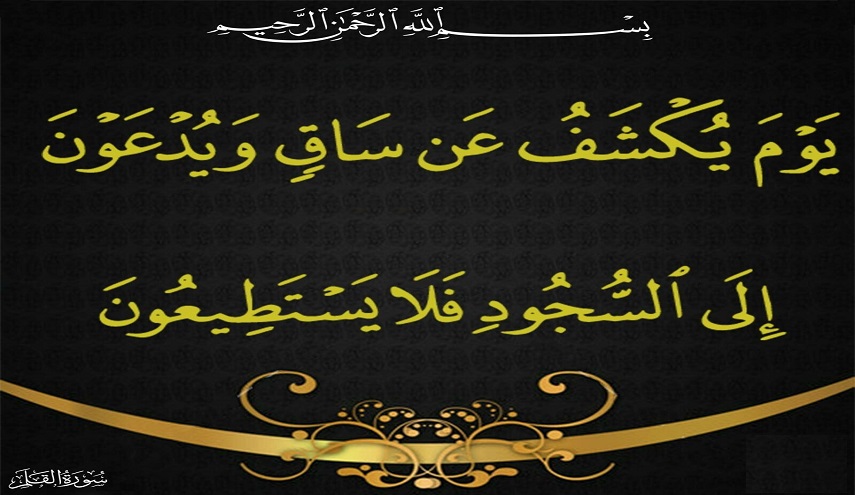 بِسْمِ ٱللَّهِ ٱلرَّحْمَٰنِ ٱلرَّحِيمِ
يَوْمَ يُكْشَفُ عَن سَاقٍ وَيُدْعَوْنَ
إِلَى ٱلسُّجُودِ فَلَا يَسْتَطِيعُونَ
سُورَةُ القَلَمِ